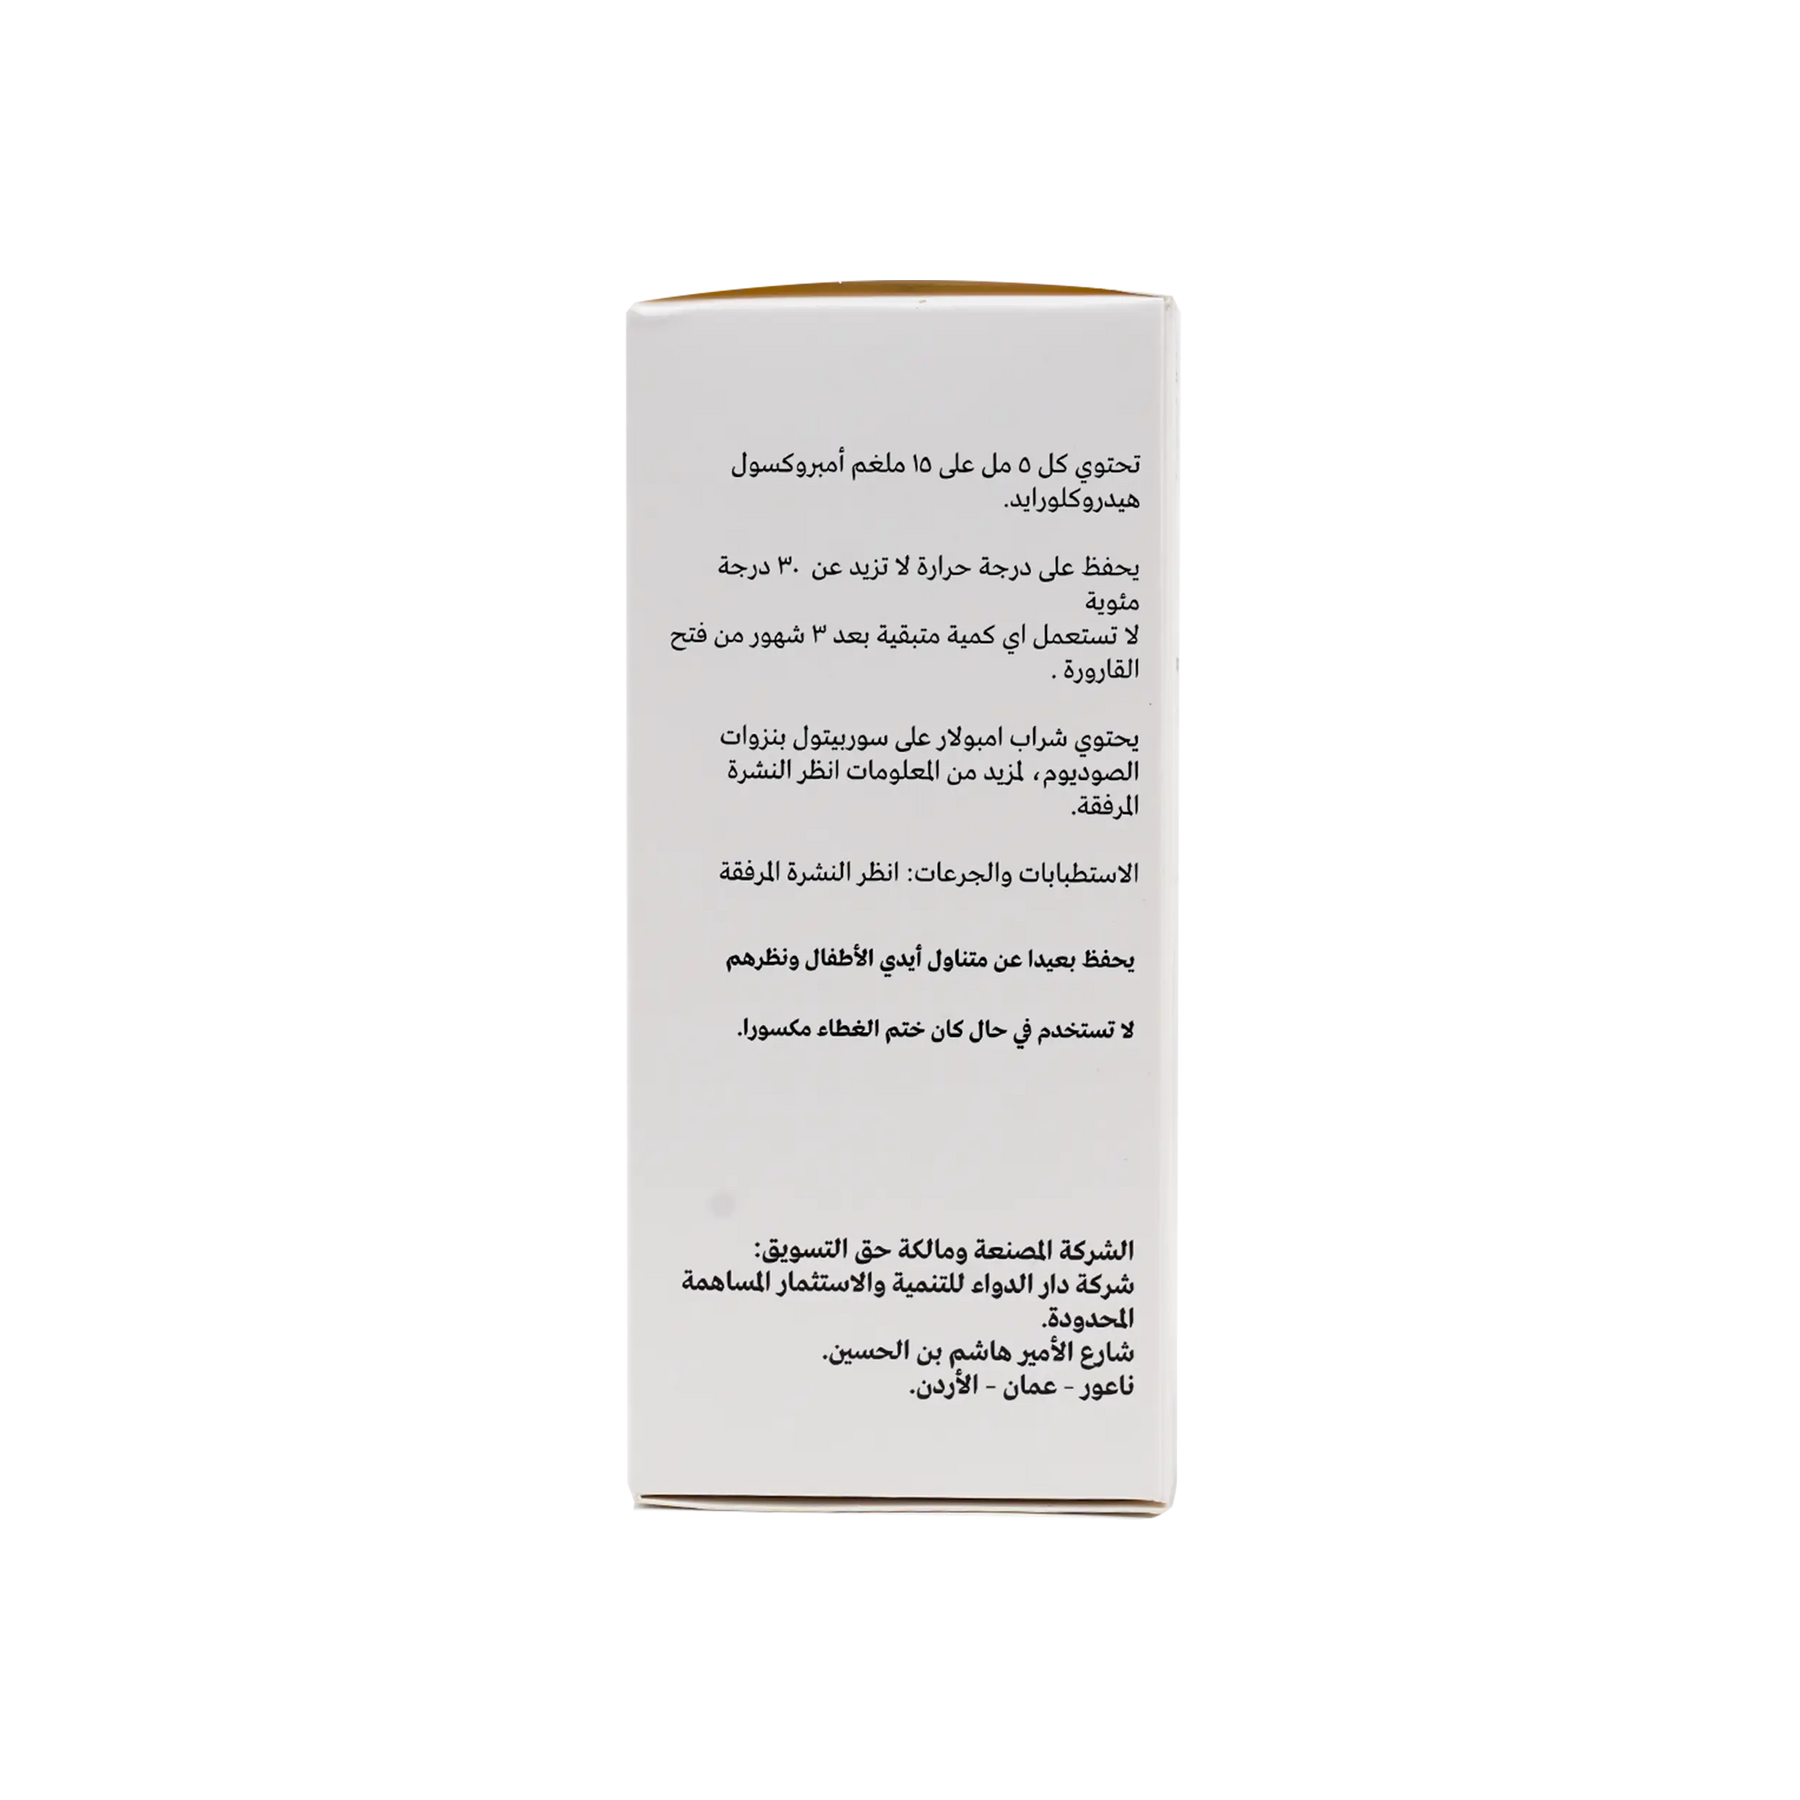 تحتوي كل ٥ مل على ١٥ ملغم أمبروكسول
هيدروكلورايد.
يحفظ على درجة حرارة لا تزيد عن ٣٠ درجة
مئوية
لا تستعمل اي كمية متبقية بعد ٣ شهور من فتح
القارورة .
يحتوي شراب امبولار على سوربيتول بنزوات
الصوديوم، لمزيد من المعلومات انظر النشرة
المرفقة.
الاستطبابات والجرعات: انظر النشرة المرفقة
يحفظ بعيدا عن متناول أيدي الأطفال ونظرهم
لا تستخدم في حال كان ختم الغطاء مكسورا.
الشركة المصنعة ومالكة حق التسويق:
شركة دار الدواء للتنمية والاستثمار المساهمة
المحدودة.
شارع الأمير هاشم بن الحسين.
ناعور - عمان - الأردن.